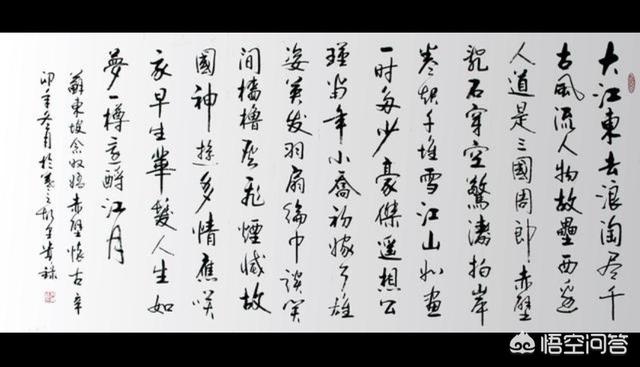 大江東去浪淘尽千
古風流人物故壘西邊
人道是三國周郎赤壁
乱石穿空驚濤拍岸
卷起千堆雪江山如画
一时多少豪傑遥想公
瑾当年小喬初嫁了雄
姿英发羽扇綸巾談笑
间檣櫓灰飛煙滅故
國神遊多情應笑
我早生華髮人生如
夢一樽還酹江月
蘇東坡念奴嬌赤壁懷古辛
卯年冬月於
悟空问答